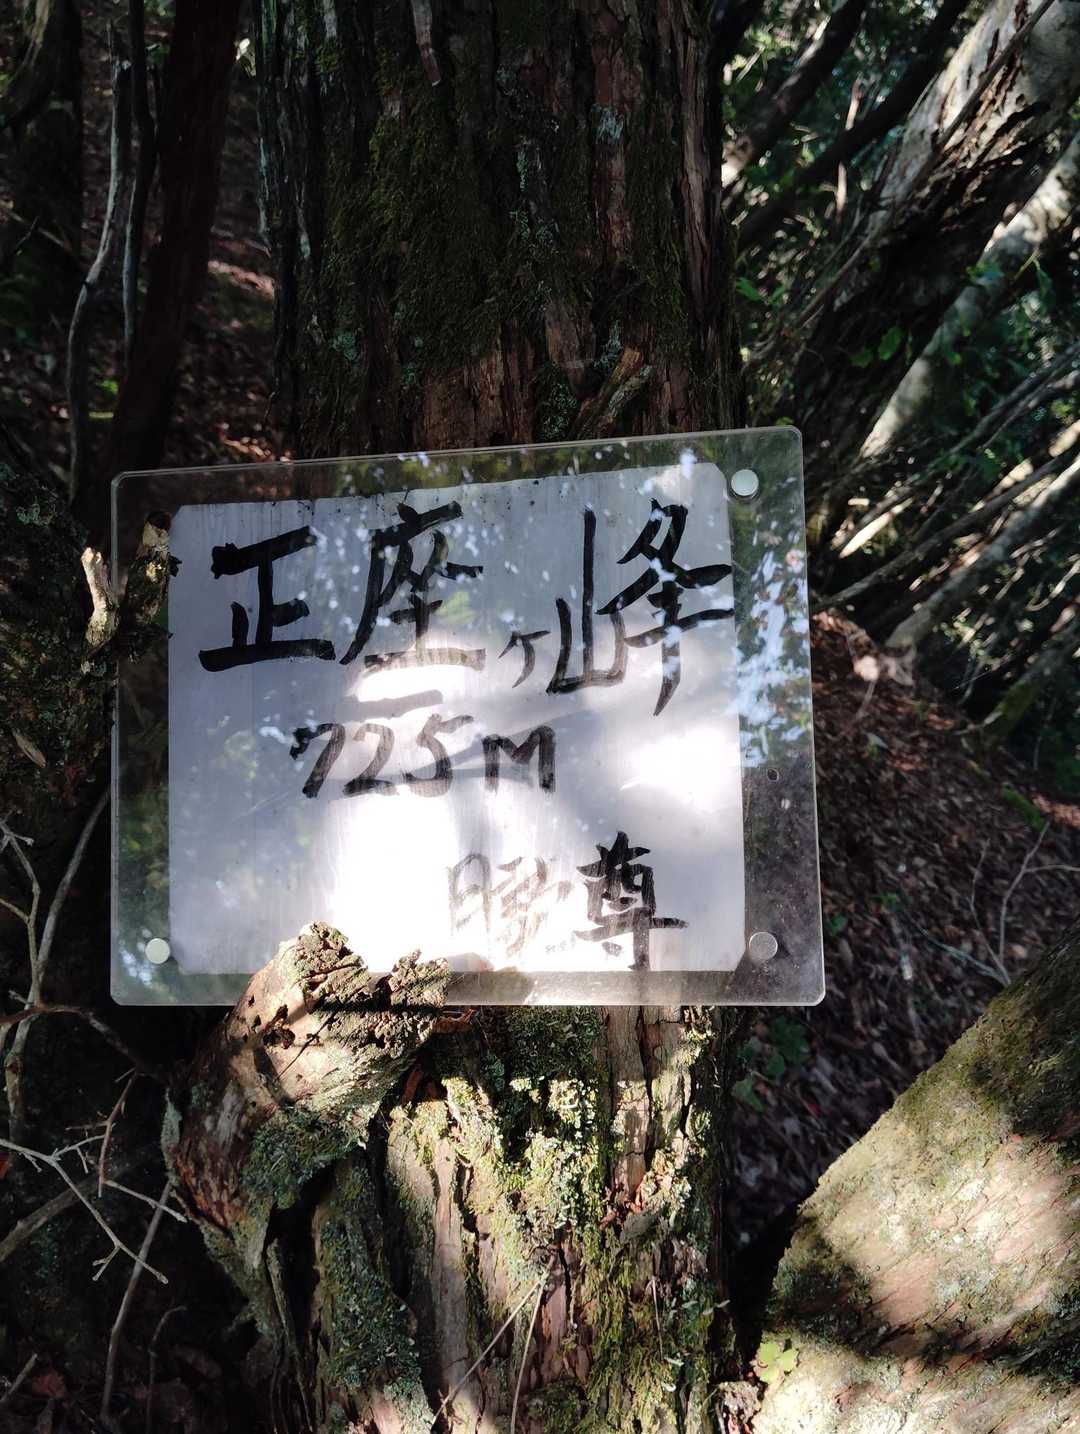 正座ヶ峰
725M
勝尊